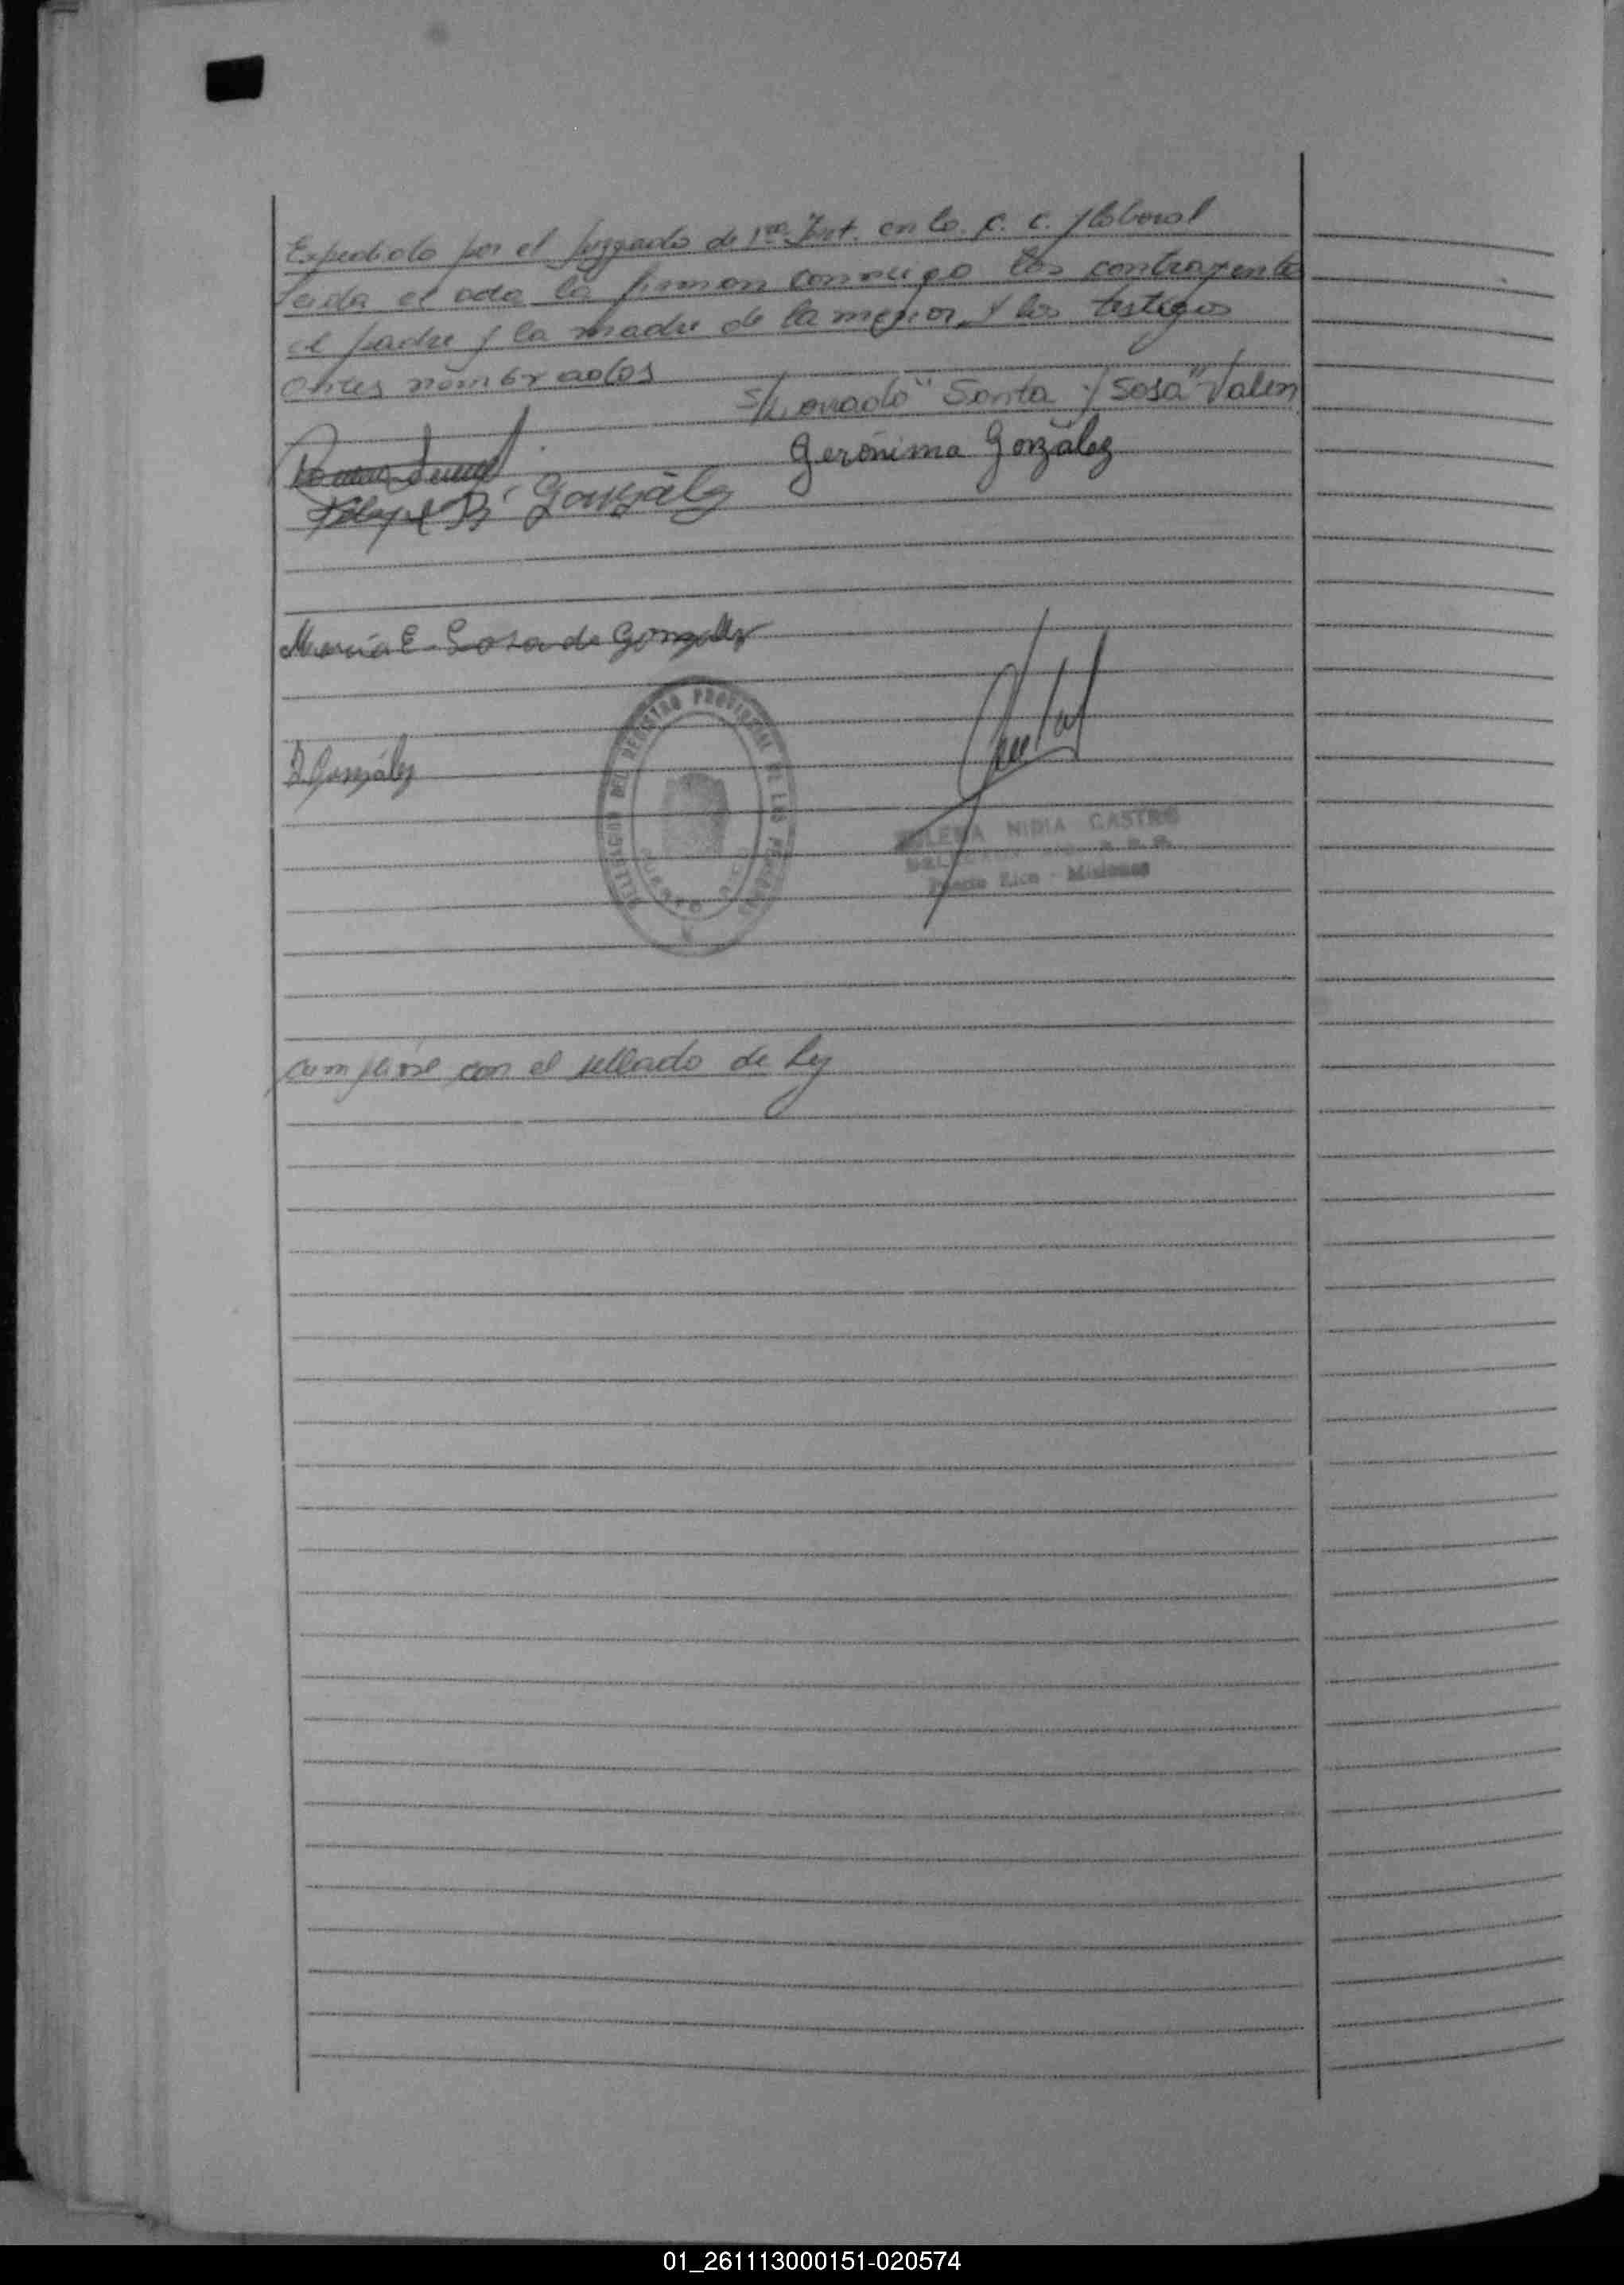 Expedido por el Juzgado de 1ra. Inst. en lo. C. C. y laboral
Leida el acta la firman conmigo los contrayente
el padre y la madre de la menor, y los testigos
antes nombrados
"Santa y Sosa" Valen
Gerónima González
González
María E. Sosa de González
González
DELEGACION DEL REGISTRO PROVINCIAL DE LAS PERSONAS
PUERTO RICO
NIDIA CASTRO
Puerto Rico - Misiones
cumplióse con el sellado de Ley
01_261113000151-020574